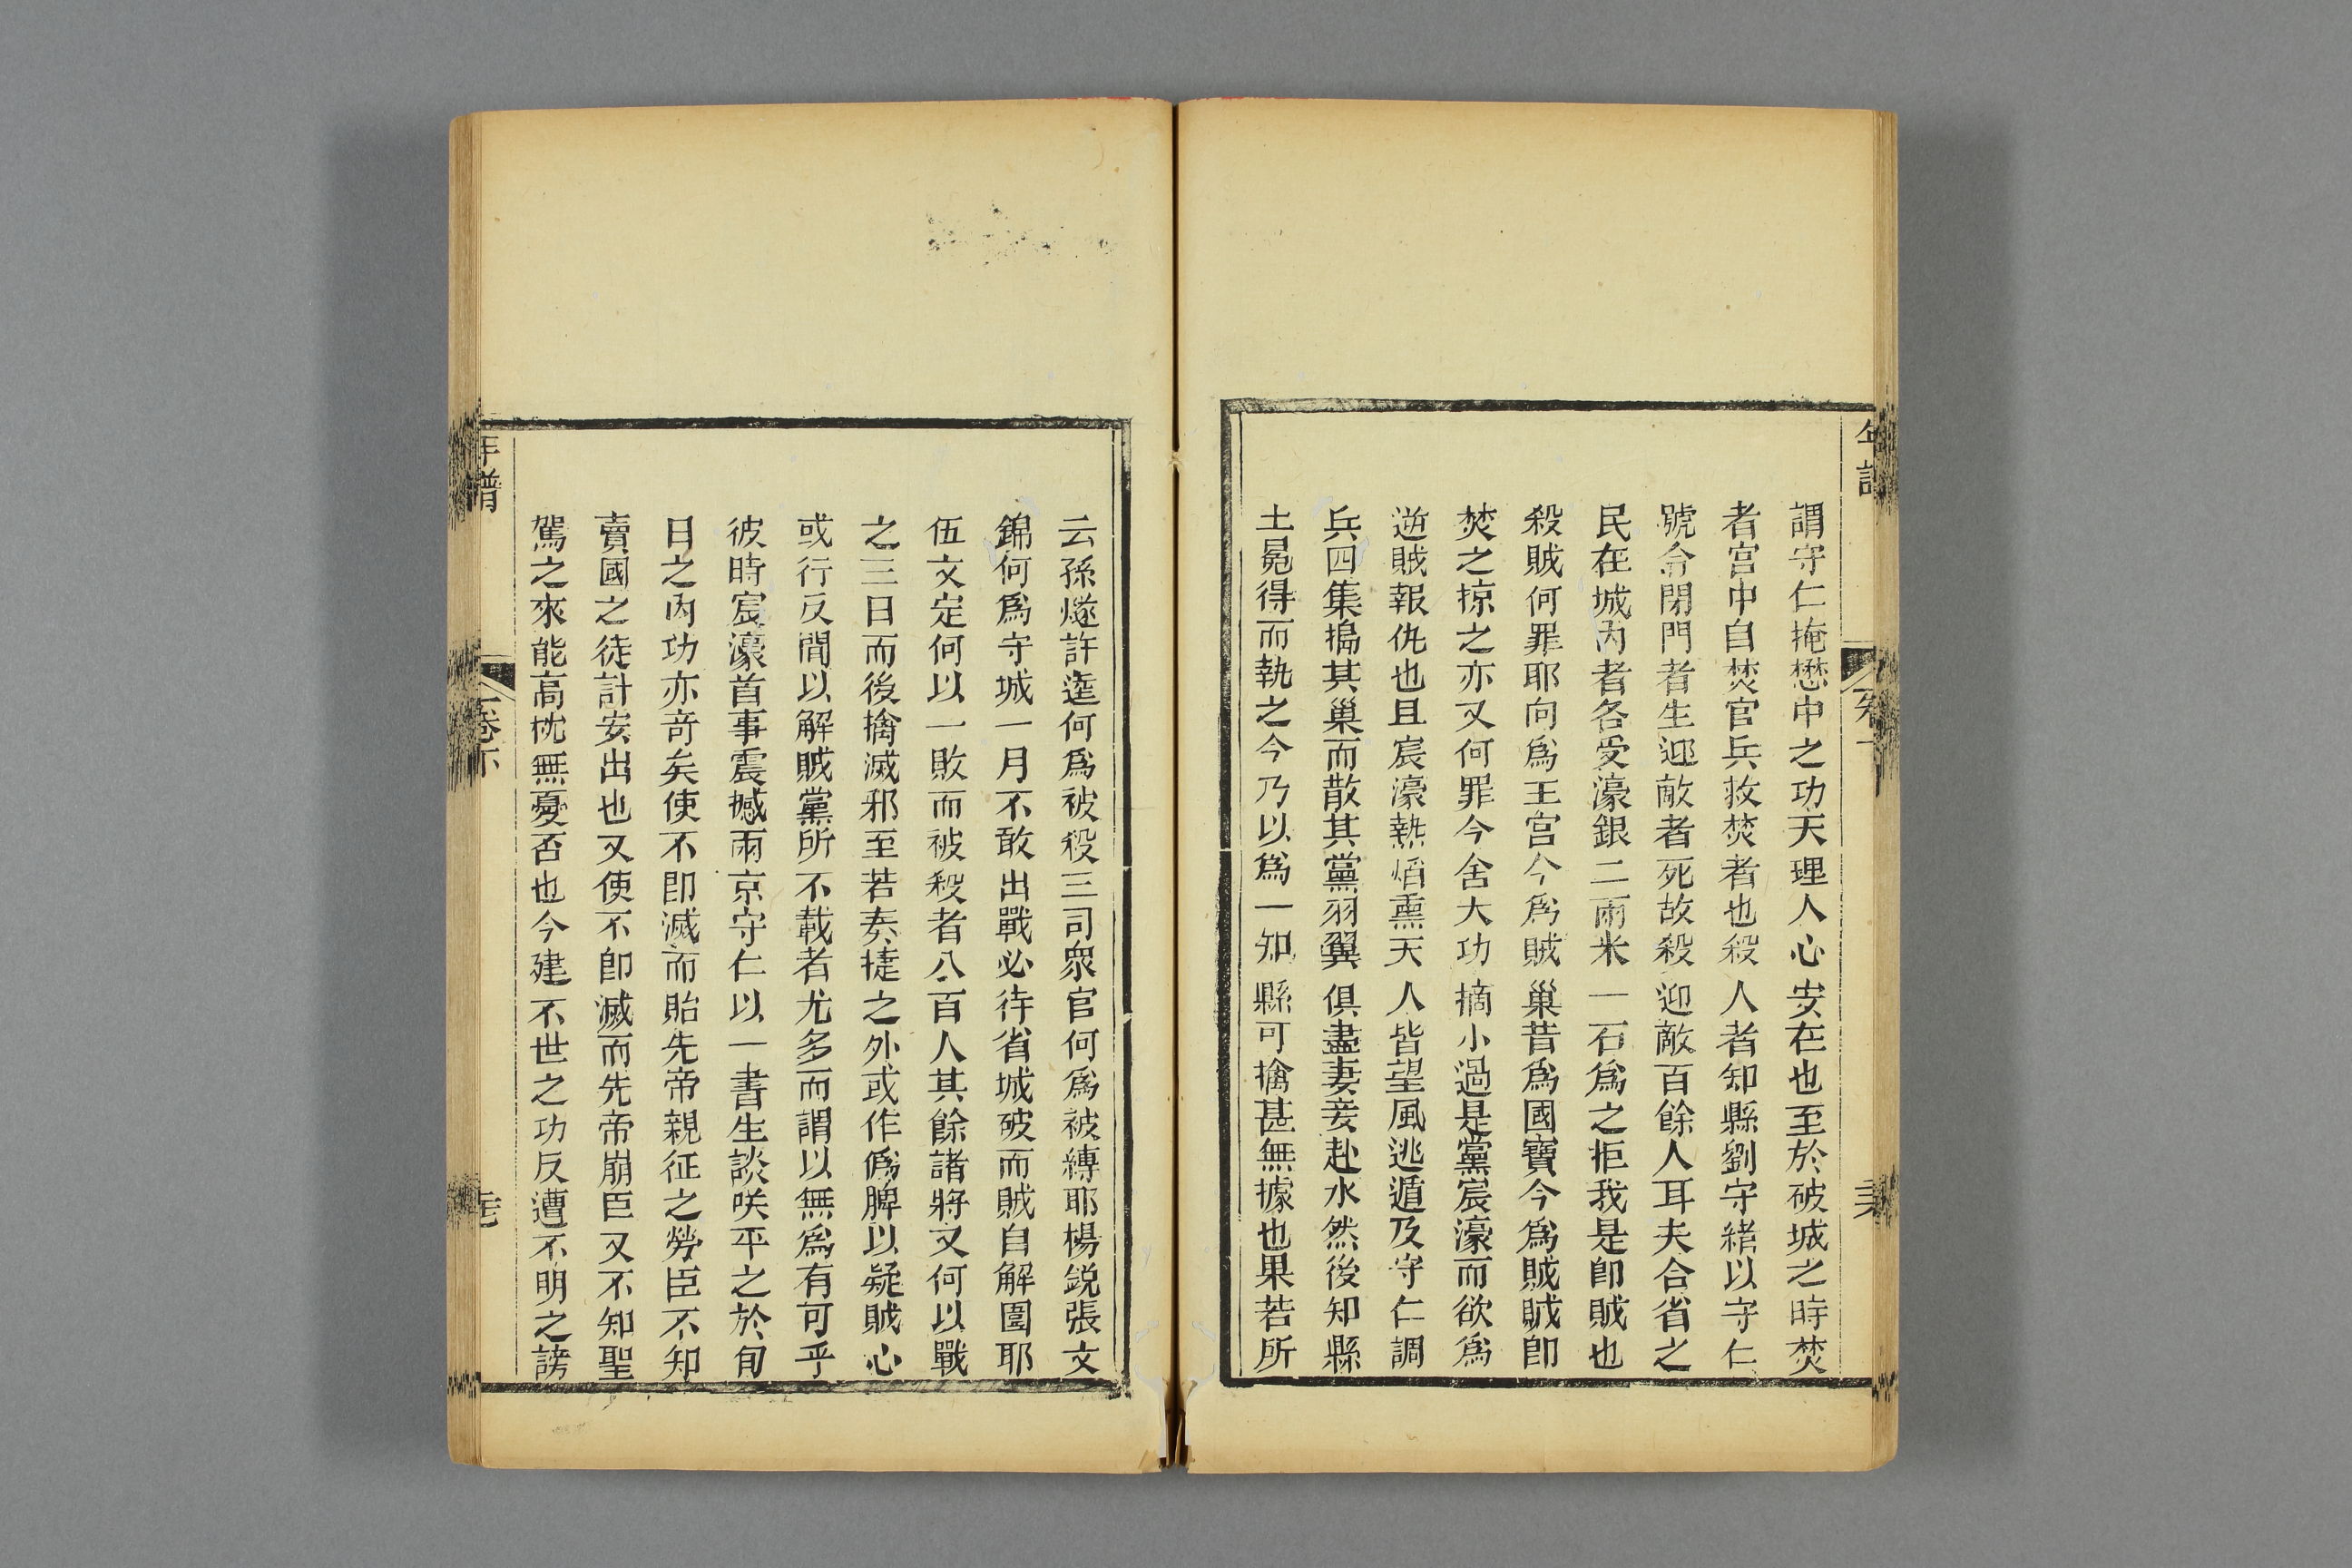 謂守仁掩懋中之功天理人心安在也至於破城之時焚
者宮中自焚官兵救焚者也殺人者知縣劉守緒以守仁
號令閉門者生迎敵者死故殺迎敵百餘人耳夫合省之
民在城內者各受濠銀二兩米一石爲之拒我是卽賊也
殺賊何罪耶向爲王宮今爲賊巢昔爲國寶今爲賊贓卽
焚之掠之亦又何罪今舍大功摘小過是黨宸濠而欲爲
逆賊報仇也且宸濠勢焰熏天人皆望風逃遁及守仁調
兵四集搗其巢而散其黨羽翼俱盡妻妾赴水然後知縣
土冕得而執之今乃以爲一知縣可擒甚無據也果若所
云孫燧許逵何爲被殺三司眾官何爲被縛耶楊銳張文
錦何爲守城一月不敢出戰必待省城破而賊自解圍耶
伍文定何以一敗而被殺者八百人其餘諸將又何以戰
之三日而後擒滅邪至若奏捷之外或作僞牌以疑賊心
或行反間以解賊黨所不載者尤多而謂以無爲有可乎
彼時宸濠首事震撼兩京守仁以一書生談咲平之於旬
日之內功亦奇矣使不卽滅而貽先帝親征之勞臣不知
賣國之徒計安出也又使不卽滅而先帝崩臣又不知聖
駕之來能高枕無憂否也今建不世之功反遭不明之謗
年譜
卷下